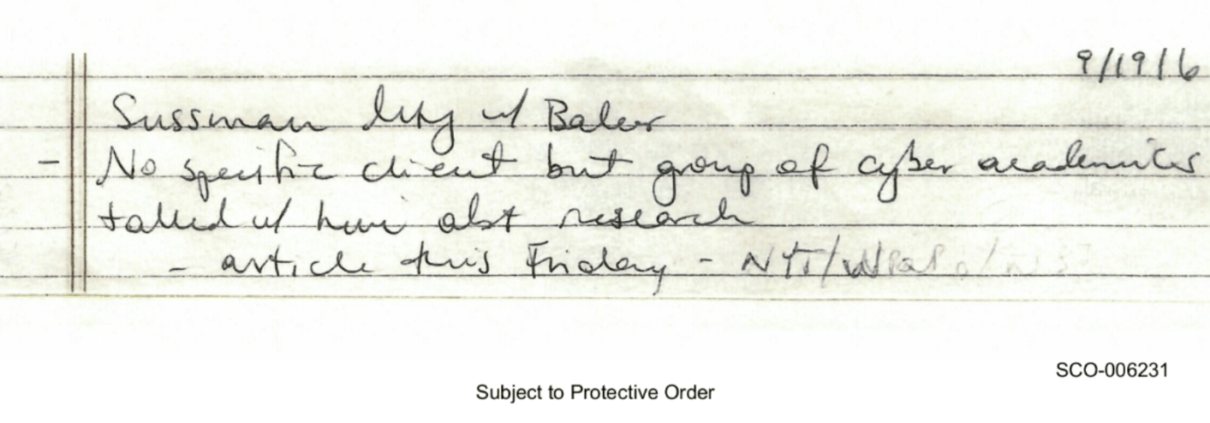 9/19/16
Sussman Mtg w/ Baker
- No specific client but group of cyber academics
talked w/ him abt research
- article this Friday - NYT/WPost
SCO-006231
Subject to Protective Order